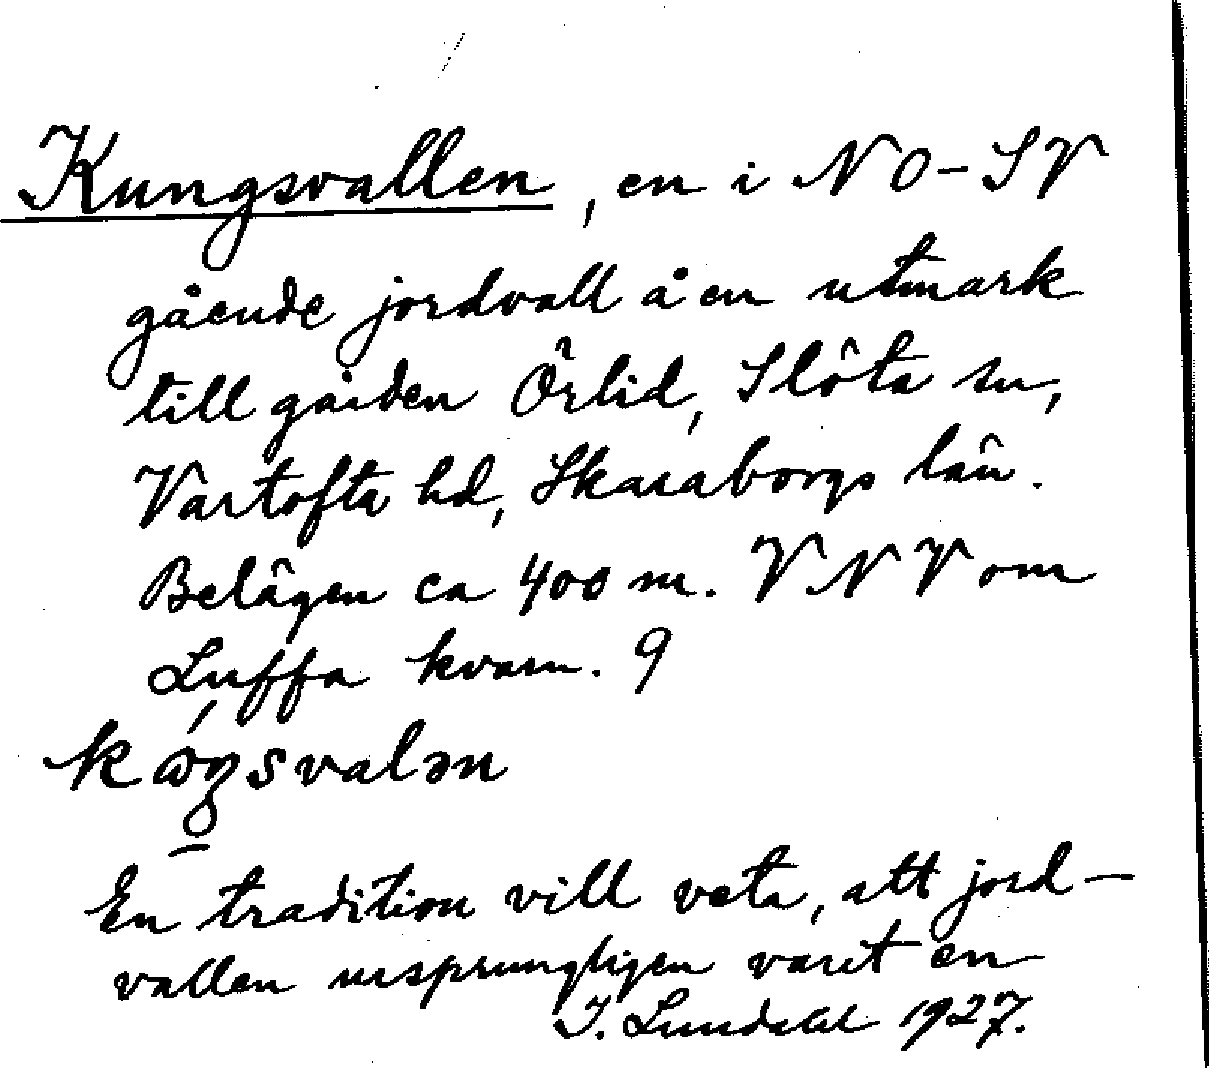 Kungsvallen, en i NO-SV
gående jordvall å en utmark
till gården Örlid, Slöta sn,
Vartofta hd, Skaraborgs län.
Belägen ca 400 m. VNV om
Luffa kvarn. 9
En tradition vill veta, att jord-
vallen ursprungligen varit en
I. Lundahl 1927.